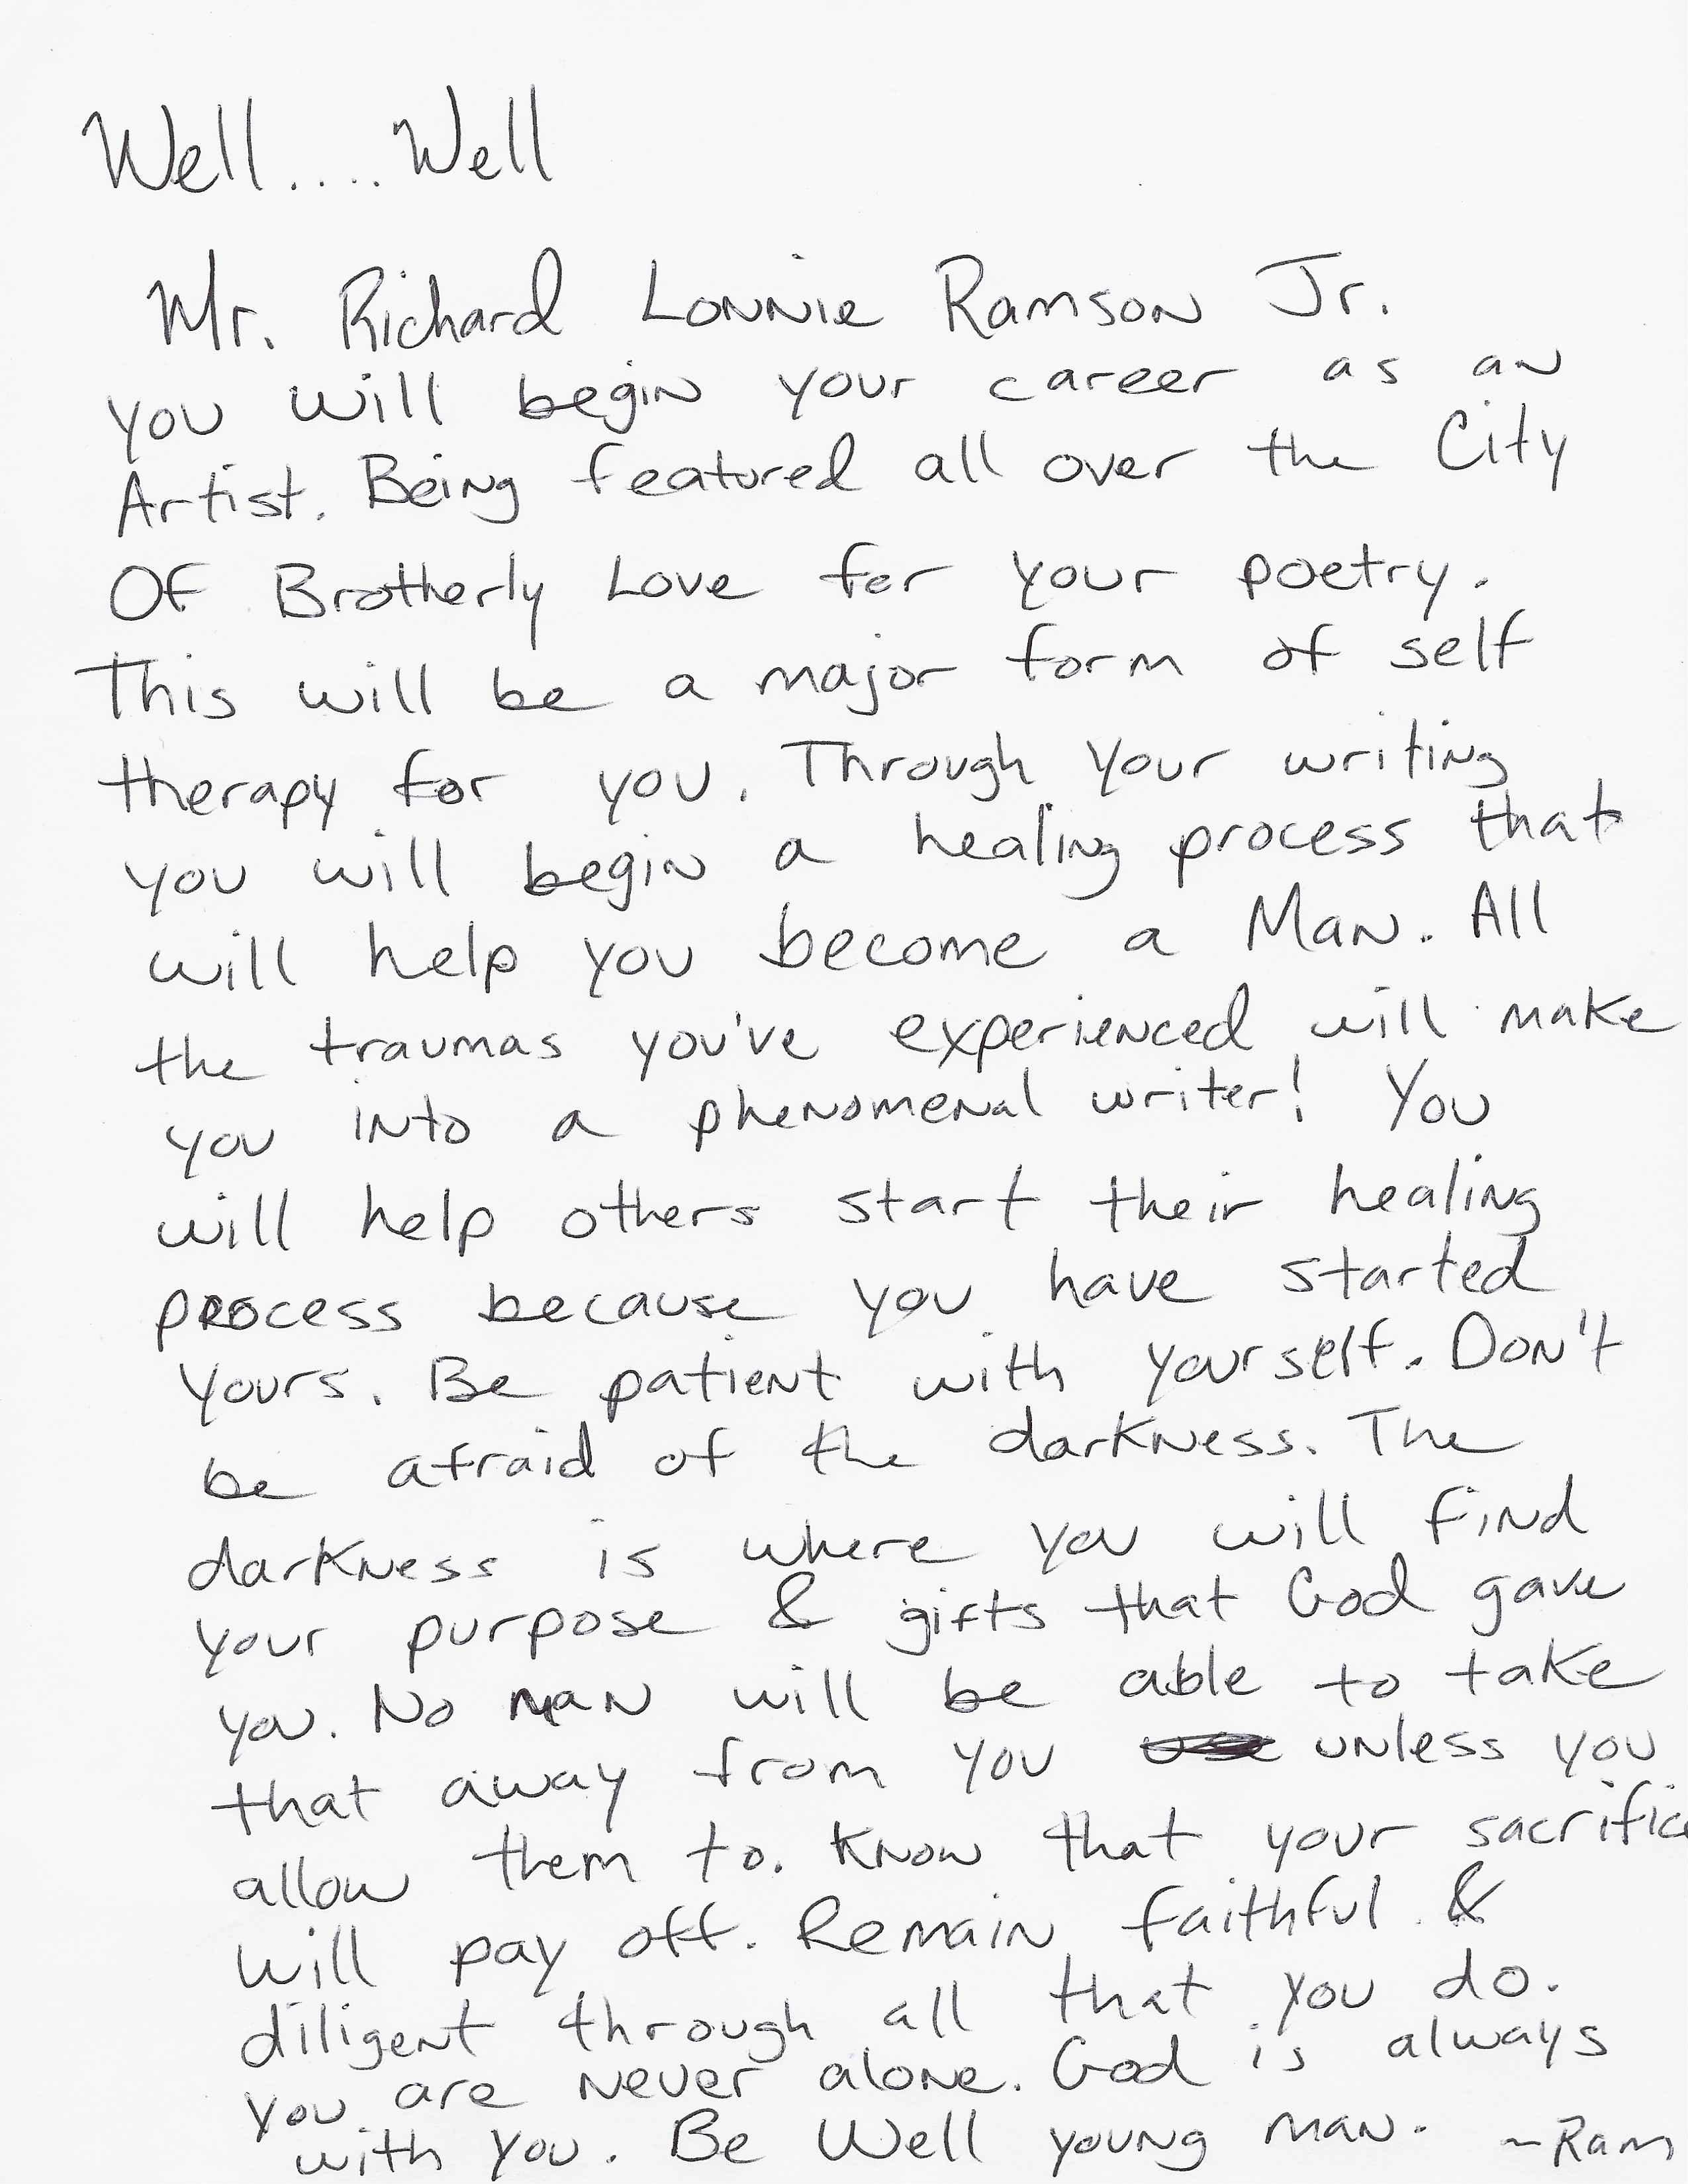 Well....Well
Mr. Richard Lonnie Ramson Jr.
you will begin your career as an
Artist. Being featured all over the City
Of Brotherly Love for your poetry.
This will be a major form of self
therapy for you. Through your writing
you will begin a healing process that
will help you become a Man. All
the traumas you've experienced will make
you into a phenomenal writer! You
will help others start their healing
process because you have started
yours. Be patient with yourself. Don't
be afraid of the darkness. The
darkness is where you will find
your purpose & gifts that God gave
you. No man will be able to take
that away from you unless you
allow them to. Know that your sacrifice
will pay off. Remain faithful &
diligent through all that you do.
You are never alone. God is always
with you. Be Well young man. ~Ram